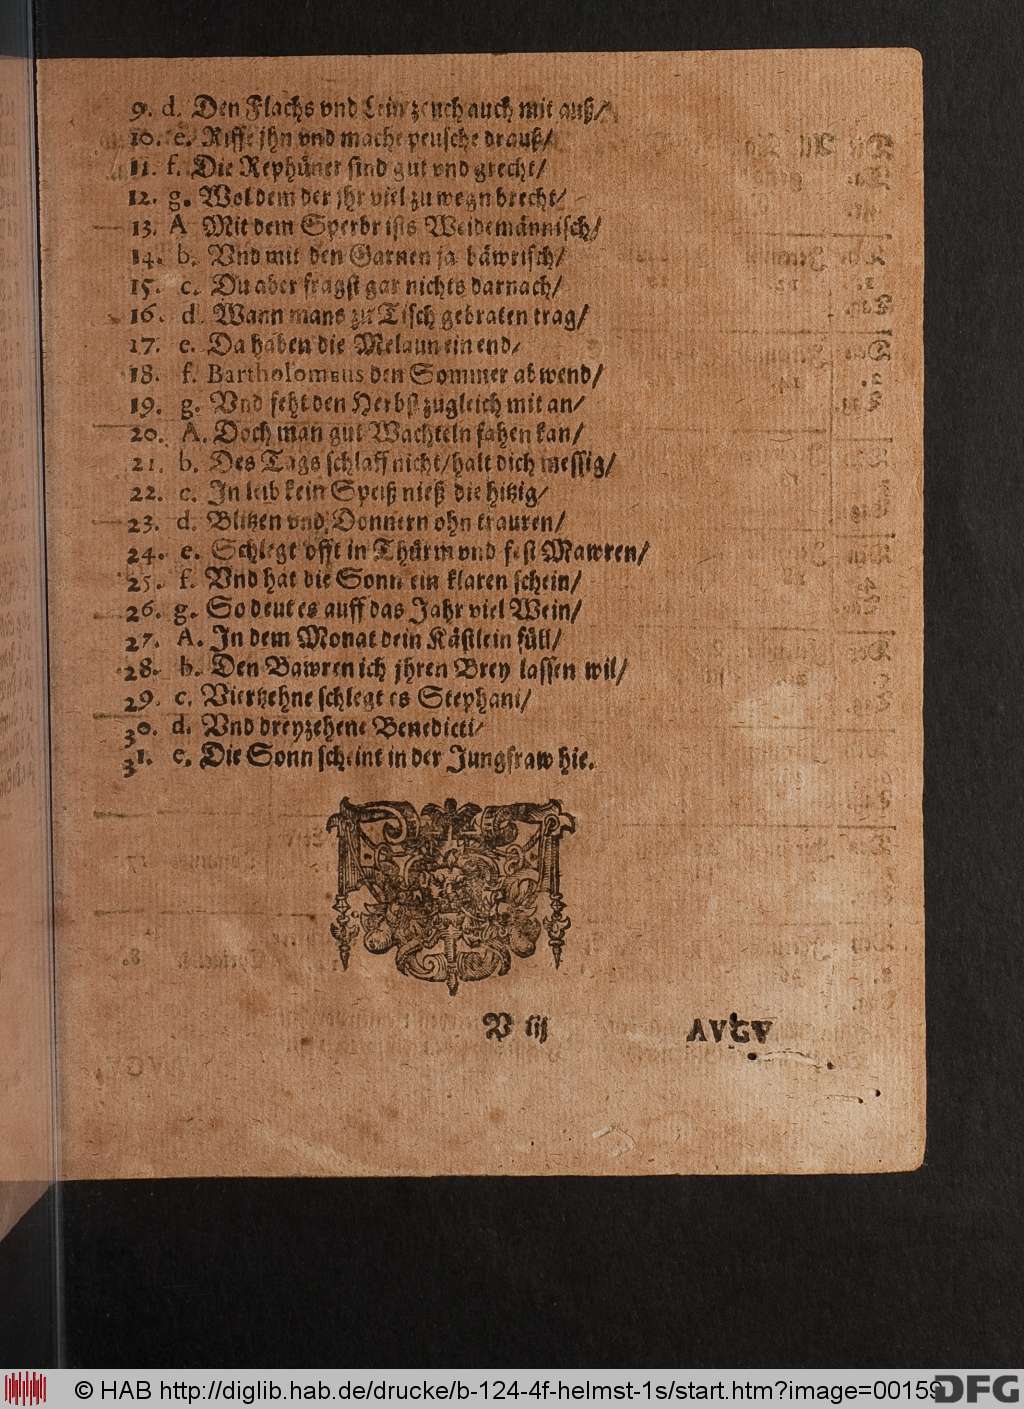 9. d. Den Flachs vnd Lein zeuch auch mit auß/
10. e. Riffe jhn vnd mache peusche drauß/
11. f. Die Rephüner sind gut vnd grecht/
12. g. Wol dem der jhr viel zu wegn brecht/
13. A Mit dem Sperbr ists Weidemännisch/
14. b. Vnd mit den Garnen ja bäwrisch/
15. c. Du aber fragst gar nichts darnach/
16. d. Wann mans zu Tisch gebraten trag/
17. e. Da haben die Melaun ein end/
18. f. Bartholomeus den Sommer abwend/
19. g. Vnd feht den Herbst zugleich mit an/
20. A. Doch man gut Wachteln fahen kan/
21. b. Des Tags schlaff nicht/halt dich messig/
22. c. In leib kein Speiß nieß die hitzig/
23. d. Blitzen vnd Donnern ohn trauren/
24. e. Schlegt offt in Thürm vnd fest Mawren/
25. f. Vnd hat die Sonn ein klaren schein/
26. g. So deut es auff das Jahr viel Wein/
27. A. In dem Monat dein Kästlein füll/
28. b. Den Bawren ich jhren Brey lassen wil/
29. c. Viertzehne schlegt es Stephani/
30. d. Vnd dreyzehene Benedicti/
31. e. Die Sonn scheint in der Jungfraw hie.
P iij AVGV
© HAB http://diglib.hab.de/drucke/b-124-4f-helmst-1s/start.htm?image=00159
DFG